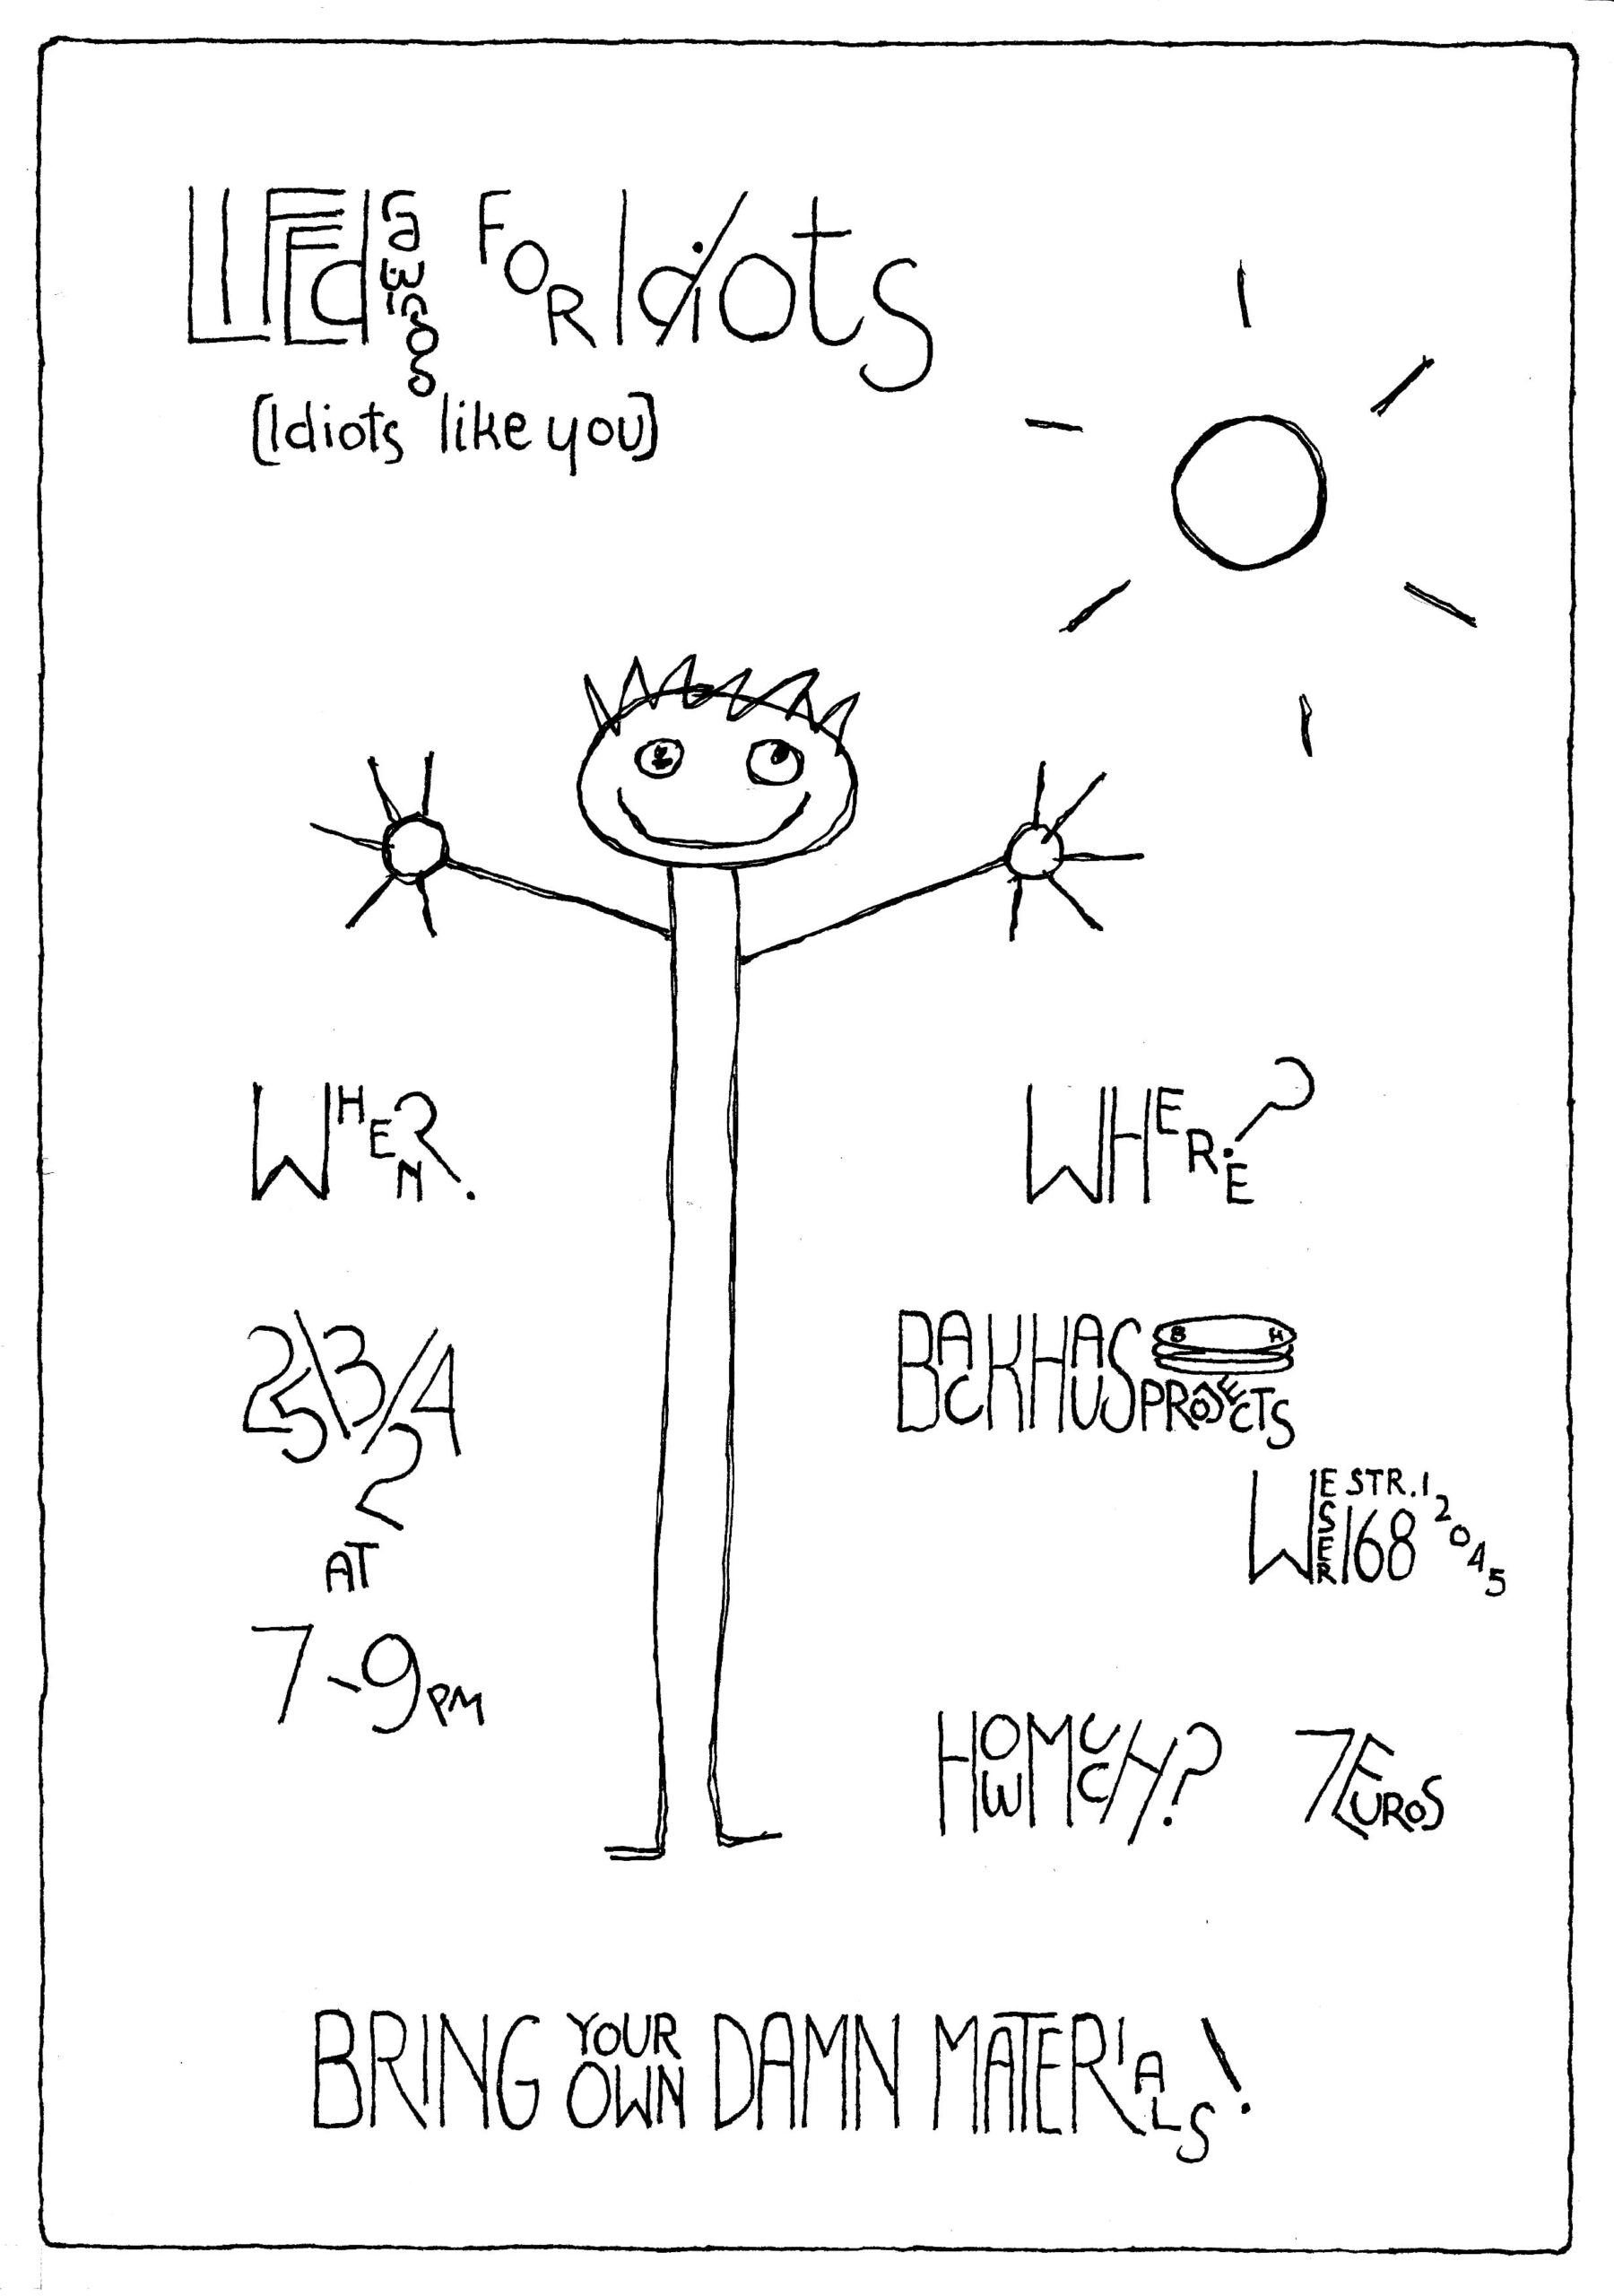 LIFE drawing FOR Idiots
(Idiots like you)
WHEN?
WHERE?
25\3/24
AT
7-9PM
BACKHAUS PROJECTS
B H
WESERSTR. 168 12045
HOW MUCH? 7 EUROS
BRING YOUR OWN DAMN MATERIALS!